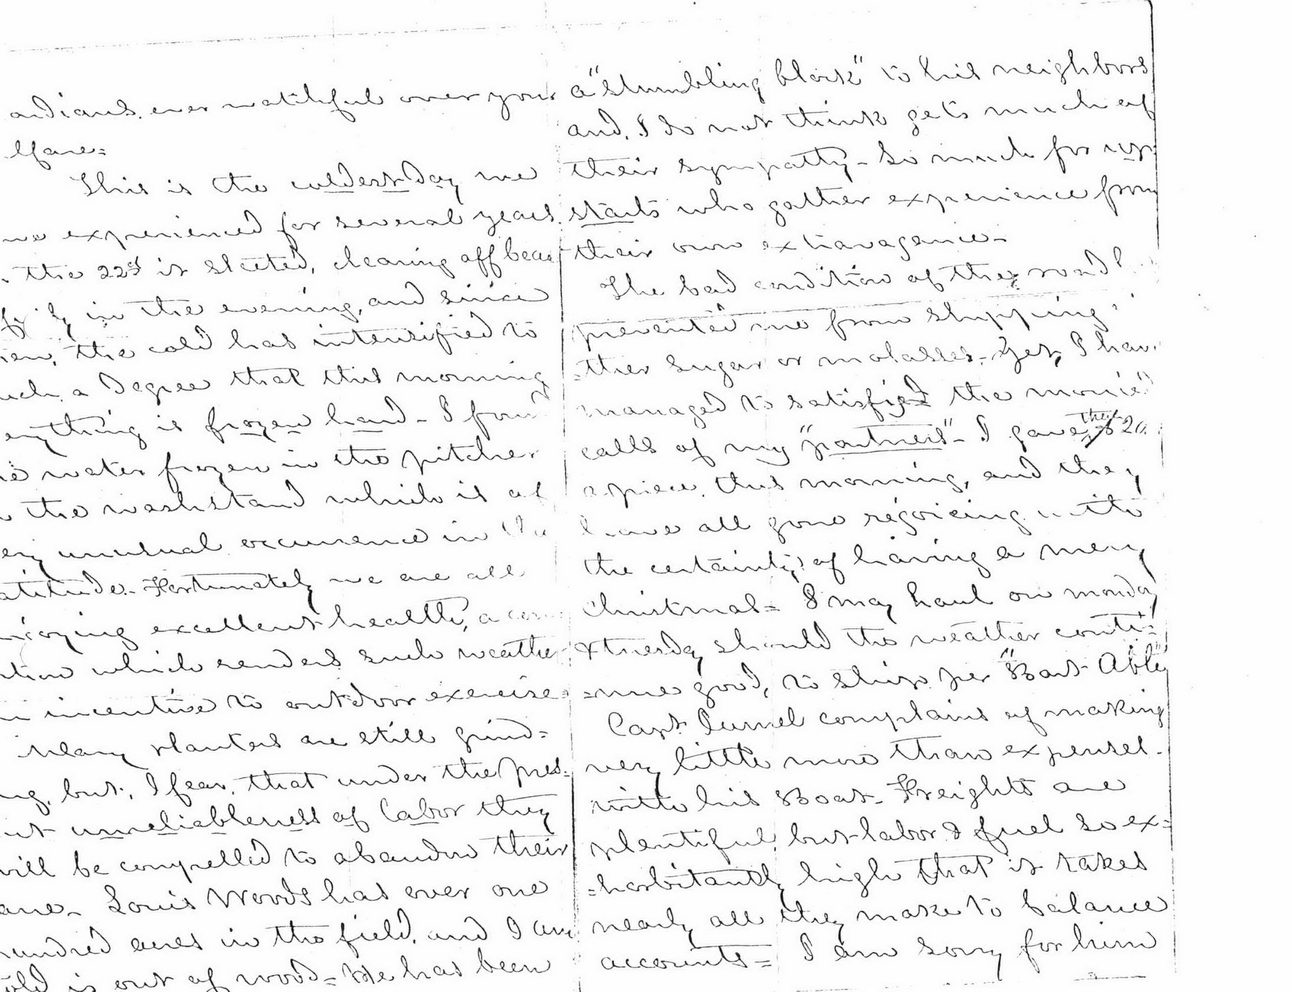 ardians ever watchful over your
lfare=
This is the coldest day we
ve experienced for several years
. the 22d it sleeted, clearing off beau
by in the evening, and since
hen, the cold has intensified to
uch a degree that this morning
erything is frozen hard - I foun
e water frozen in the pitcher
n the washstand which is of
ery unusual occurrence in this
atitude. Fortunately we are all
njoying excellent health, a con
tion which renders such weather
n incentive to outdoor exercise=
Many planters are still grind=
ng, but, I fear, that under the pres=
nt unreliableness of labor they
will be compelled to abandon their
ane - Louis Woods has over one
hundred acres in the field, and I am
old is out of wood = He has been
a "stumbling block" to his neighbors
and, I do not think gets much of
their sympathy - So much for up=
starts who gather experience from
their own extravagance -
The bad condition of the roads
prevented me from shipping
=ther sugar or molasses - Yet, I have
managed to satisfied the monied
calls of my "partners" - I gave them $20.
apiece this morning, and they
have all gone rejoicing with
the certainty of having a merry
Christmas = I may haul on monday
& tuesday should the weather conti=
=nue good, to ship per "Bart Able"
Capt complains of making
very little more than expenses -
with his Boat - Freights are
plentiful but labor & fuel so ex=
=horbitantly high that it takes
nearly all they make to balance
accounts = I am sorry for him